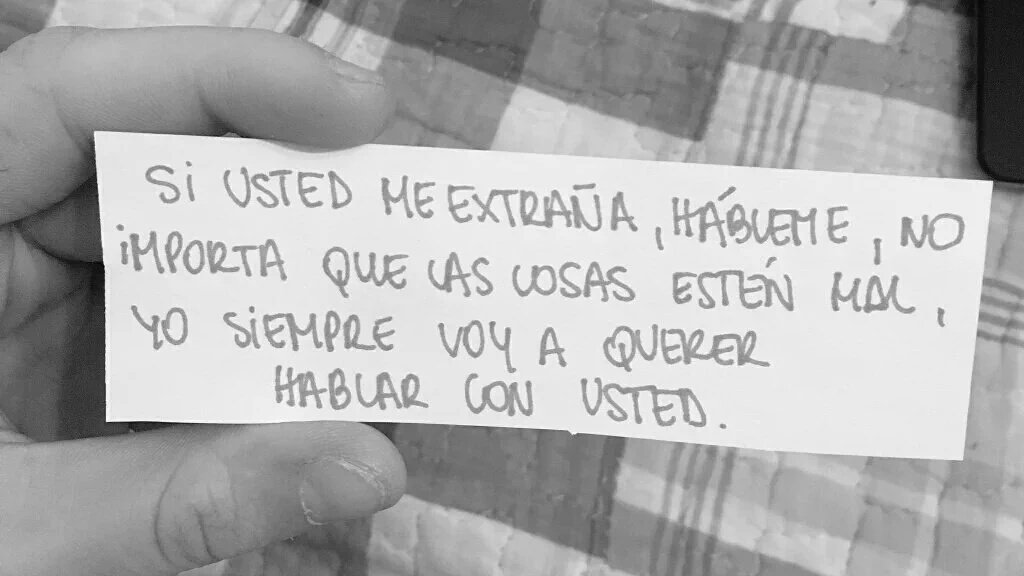 Si USTED ME EXTRAÑA, HÁBLEME, NO
iMPORTA QUE LAS COSAS ESTÉN MAL,
YO SiEMPRE VOY A QUERER
HABLAR CON USTED.